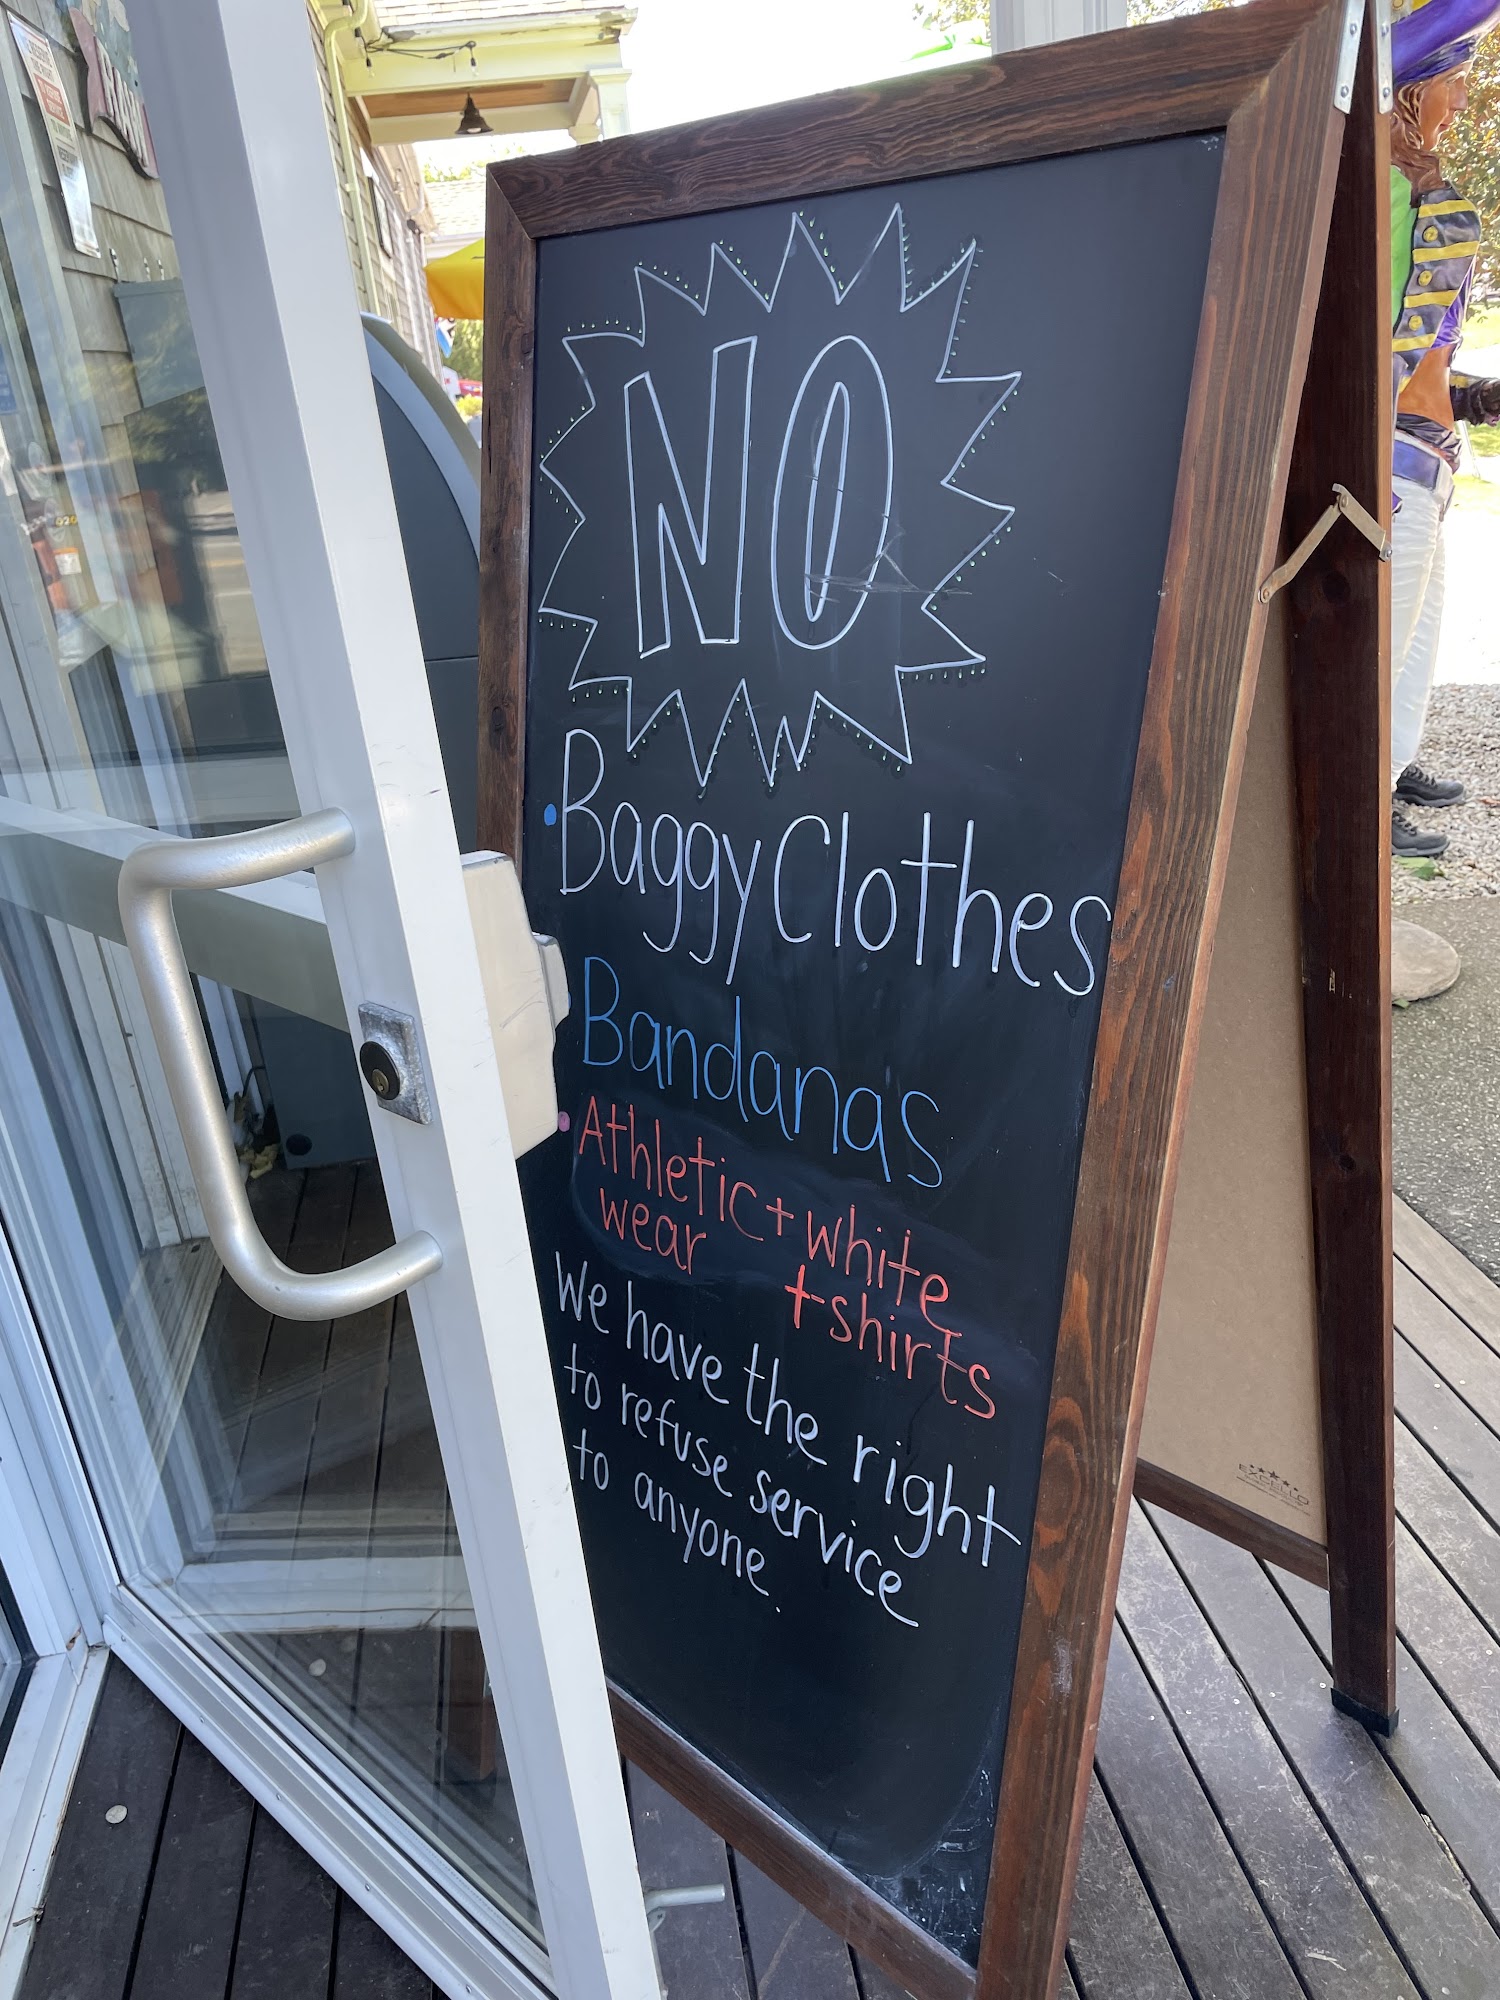 NO
• Baggy Clothes
Bandanas
• Athletic + white
wear t-shirts
We have the right
to refuse service
to anyone.
EXCELLO